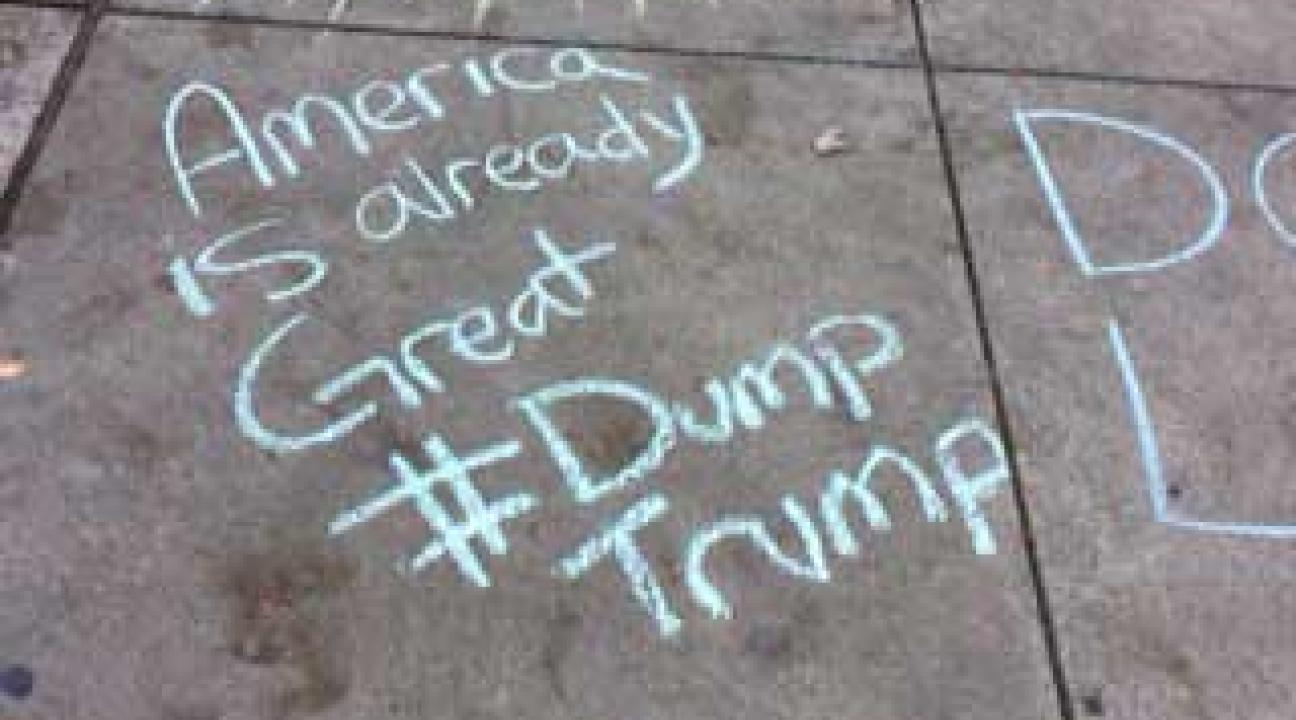 America
is already
Great
#Dump
Trump